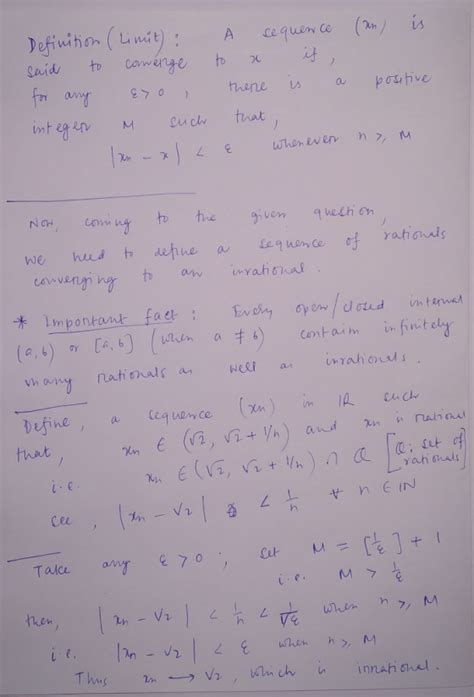 Definition (Limit) : A sequence (xn) is
said to converge to x if,
for any ε > 0, there is a positive
integer M such that,
|xn - x| < ε whenever n ≥ M
Now, coming to the given question,
we need to define a sequence of rationals
converging to an irrational.
* Important fact : Every open/closed interval
(a,b) or [a,b] (when a ≠ b) contain infinitely
many rationals as well as irrationals.
Define, a sequence (xn) in IR such
that, xn ∈ (√2, √2 + 1/n) and xn is rational
i.e. xn ∈ (√2, √2 + 1/n) ∩ Q [Q: set of rationals]
see, |xn - √2| < 1/n ∀ n ∈ IN
Take any ε > 0 ; set M = [1/ε] + 1
i.e. M > 1/ε
then, |xn - √2| < 1/n < when n ≥ M
i.e. |xn - √2| < ε when n ≥ M
Thus xn → √2, which is irrational.